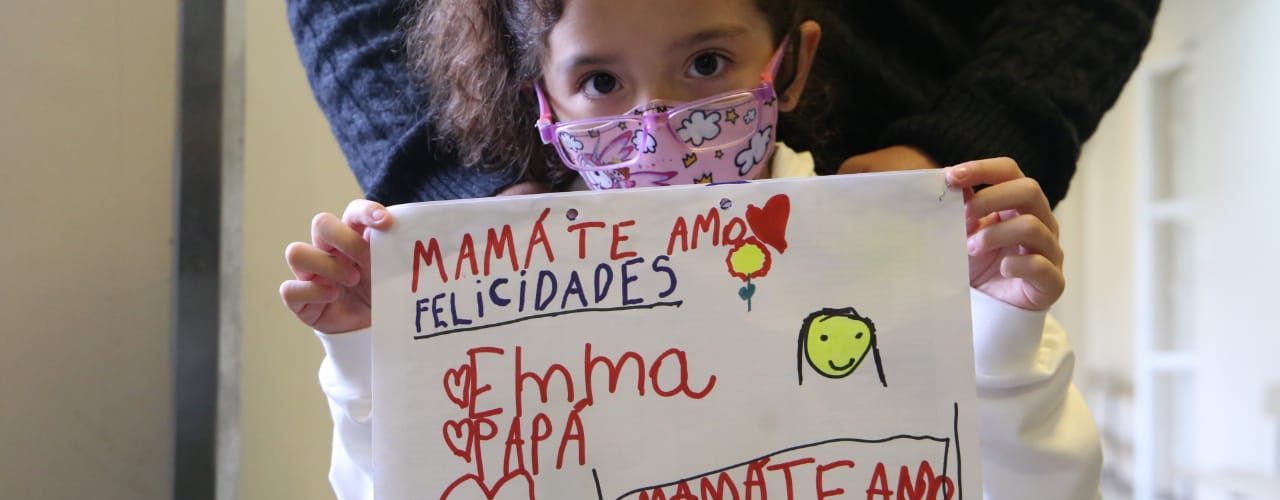 MAMÁ TE AMO
FELICIDADES
Emma
PAPÁ
MAMÁ TE AMO